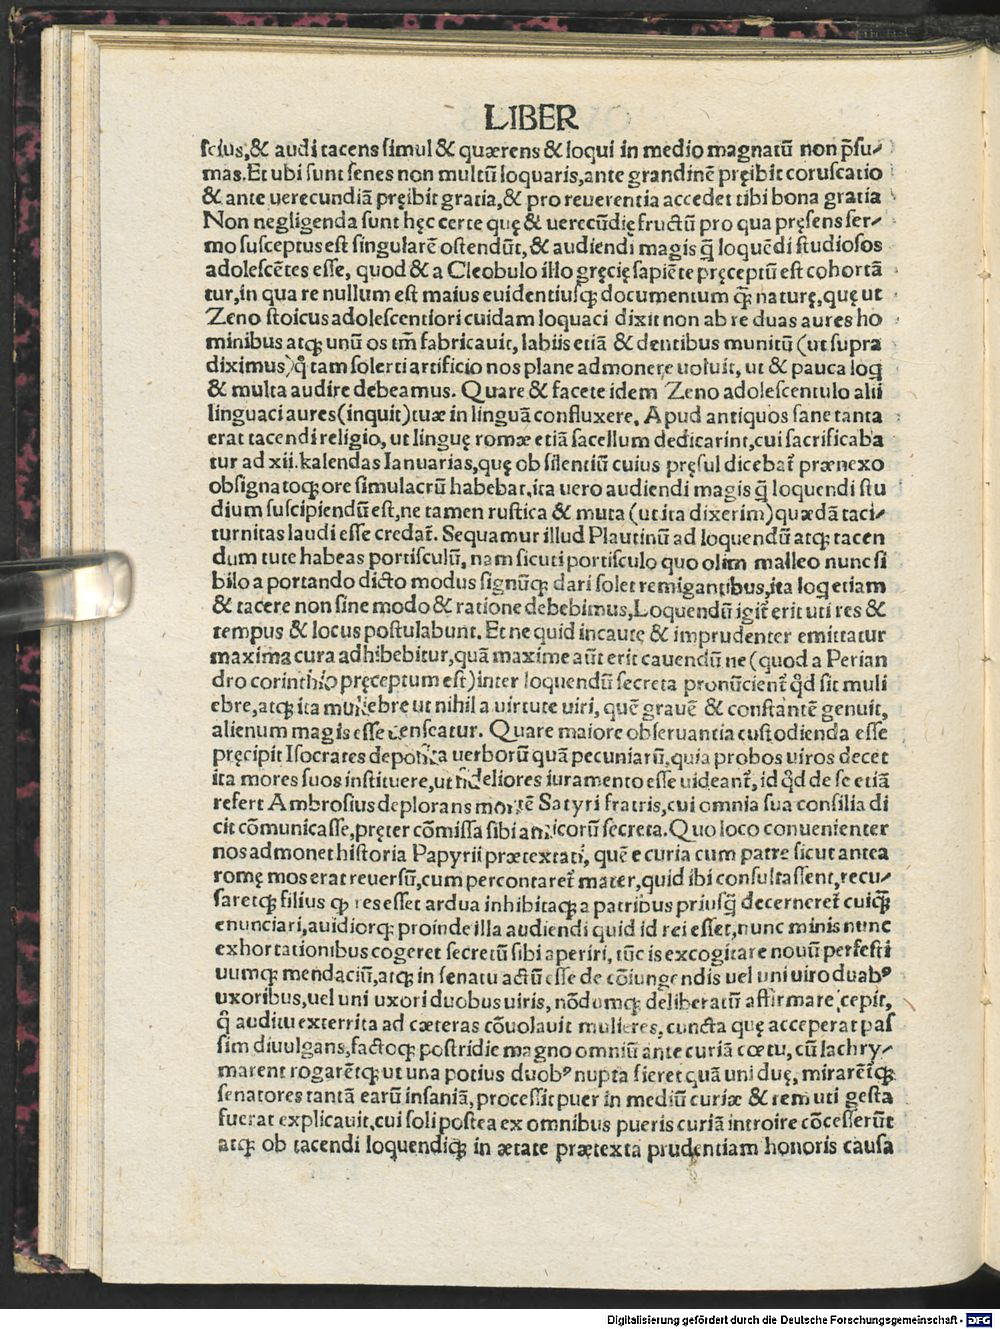 LIBER
ſcius,& audi tacens ſimul & quærens & loqui in medio magnatū non p̄ſu⸗
mas.Et ubi ſunt ſenes non multū loquaris,ante grandinē pręibit coruſcatio
& ante uerecundiā pręibit gratia,& pro reuerentia accedet tibi bona gratia
Non negligenda ſunt hęc certe quę & uerecūdię fructū pro qua pręſens ſer⸗
mo ſuſceptus eſt ſingularē oſtendūt, & audiendi magis q̄ loquēdi ſtudioſos
adoleſcētes eſſe, quod & a Cleobulo illo gręcię ſapiēte pręceptū eſt cohortā
tur,in qua re nullum eſt maius euidentiuſqꝫ documentum q̄ꝫ naturę,quę ut
Zeno ſtoicus adoleſcentiori cuidam loquaci dixit non ab re duas aures ho
minibus atqꝫ unū os tm̄ fabricauit, labiis etiā & dentibus munitū (ut ſupra
diximus)q̇̄ tam ſolerti artificio nos plane admonere uoluit, ut & pauca loq̇
& multa audire debeamus. Quare & facete idem Zeno adoleſcentulo alii
linguaci aures(inquit)tuæ in linguā confluxere. Apud antiquos ſane tanta
erat tacendi religio, ut linguę romæ etiā ſacellum dedicarint,cui ſacrificaba
tur ad xii.kalendas Ianuarias,quę ob ſilentiū cuius pręſul dicebat̄ prænexo
obſignatoqꝫ ore ſimulacrū habebat,ita uero audiendi magis q̄ loquendi ſtu
dium ſuſcipiendū eſt,ne tamen ruſtica & muta (ut ita dixerim)quædā taci⸗
turnitas laudi eſſe credat̄. Sequamur illud Plautinū ad loquendū atqꝫ tacen
dum tute habeas portiſculū, nam ſicuti portiſculo quo olim malleo nunc ſi
bilo a portando dicto modus ſignūqꝫ dari ſolet remigantibus,ita loq̇ etiam
& tacere non ſine modo & ratione debebimus,Loquendū igit̄ erit uti res &
tempus & locus poſtulabunt. Et ne quid incaute & imprudenter emittatur
maxima cura adhibebitur,quā maxime aūt erit cauendū ne (quod a Perian
dro corinthio pręceptum eſt)inter loquendū ſecreta pronūcient̄ q̇d ſit muli
ebre,atqꝫ ita muliebre ut nihil a uirtute uiri, quē grauē & conſtantē genuit,
alienum magis eſſe cenſeatur. Quare maiore obſeruantia cuſtodienda eſſe
pręcipit Iſocrates depoſita uerborū quā pecuniarū,quia probos uiros decet
ita mores ſuos inſtituere,ut fideliores iuramento eſſe uideant̄,id q̇d de ſe etiā
refert Ambroſius deplorans mortē Satyri fratris,cui omnia ſua conſilia di
cit cōmunicaſſe,pręter cōmiſſa ſibi amicorū ſecreta.Quo loco conuenienter
nos admonet hiſtoria Papyrii prætextati, quē e curia cum patre ſicut antea
romę mos erat reuerſū,cum percontaret̄ mater,quid ibi conſultaſſent,recu⸗
ſaretqꝫ filius qꝫ res eſſet ardua inhibitaqꝫ a patribus priuſq̄ decerneret̄ cuiq̄ꝫ
enunciari,auidiorqꝫ proinde illa audiendi quid id rei eſſet,nunc minis nunc
exhortationibus cogeret ſecretū ſibi aperiri, tūc is excogitare nouū perfeſti
uumqꝫ mendaciū,atqꝫ in ſenatu actū eſſe de cōiungendis uel uni uiro duabꝰ
uxoribus,uel uni uxori duobus uiris, nōdumqꝫ deliberatū affirmare cepit,
q̄ auditu exterrita ad cæteras cōuolauit mulieres, cuncta quę acceperat paſ
ſim diuulgans,factoqꝫ poſtridie magno omniū ante curiā cœtu, cū lachry⸗
marent rogarētqꝫ ut una potius duobꝰ nupta fieret quā uni duę, mirarēt̄qꝫ
ſenatores tantā earū inſaniā, proceſſit puer in mediū curiæ & rem uti geſta
fuerat explicauit,cui ſoli poſtea ex omnibus pueris curiā introire cōceſſerūt
atqꝫ ob tacendi loquendiqꝫ in ætate prætexta prudentiam honoris cauſa
Digitalisierung gefördert durch die Deutsche Forschungsgemeinschaft - DFG